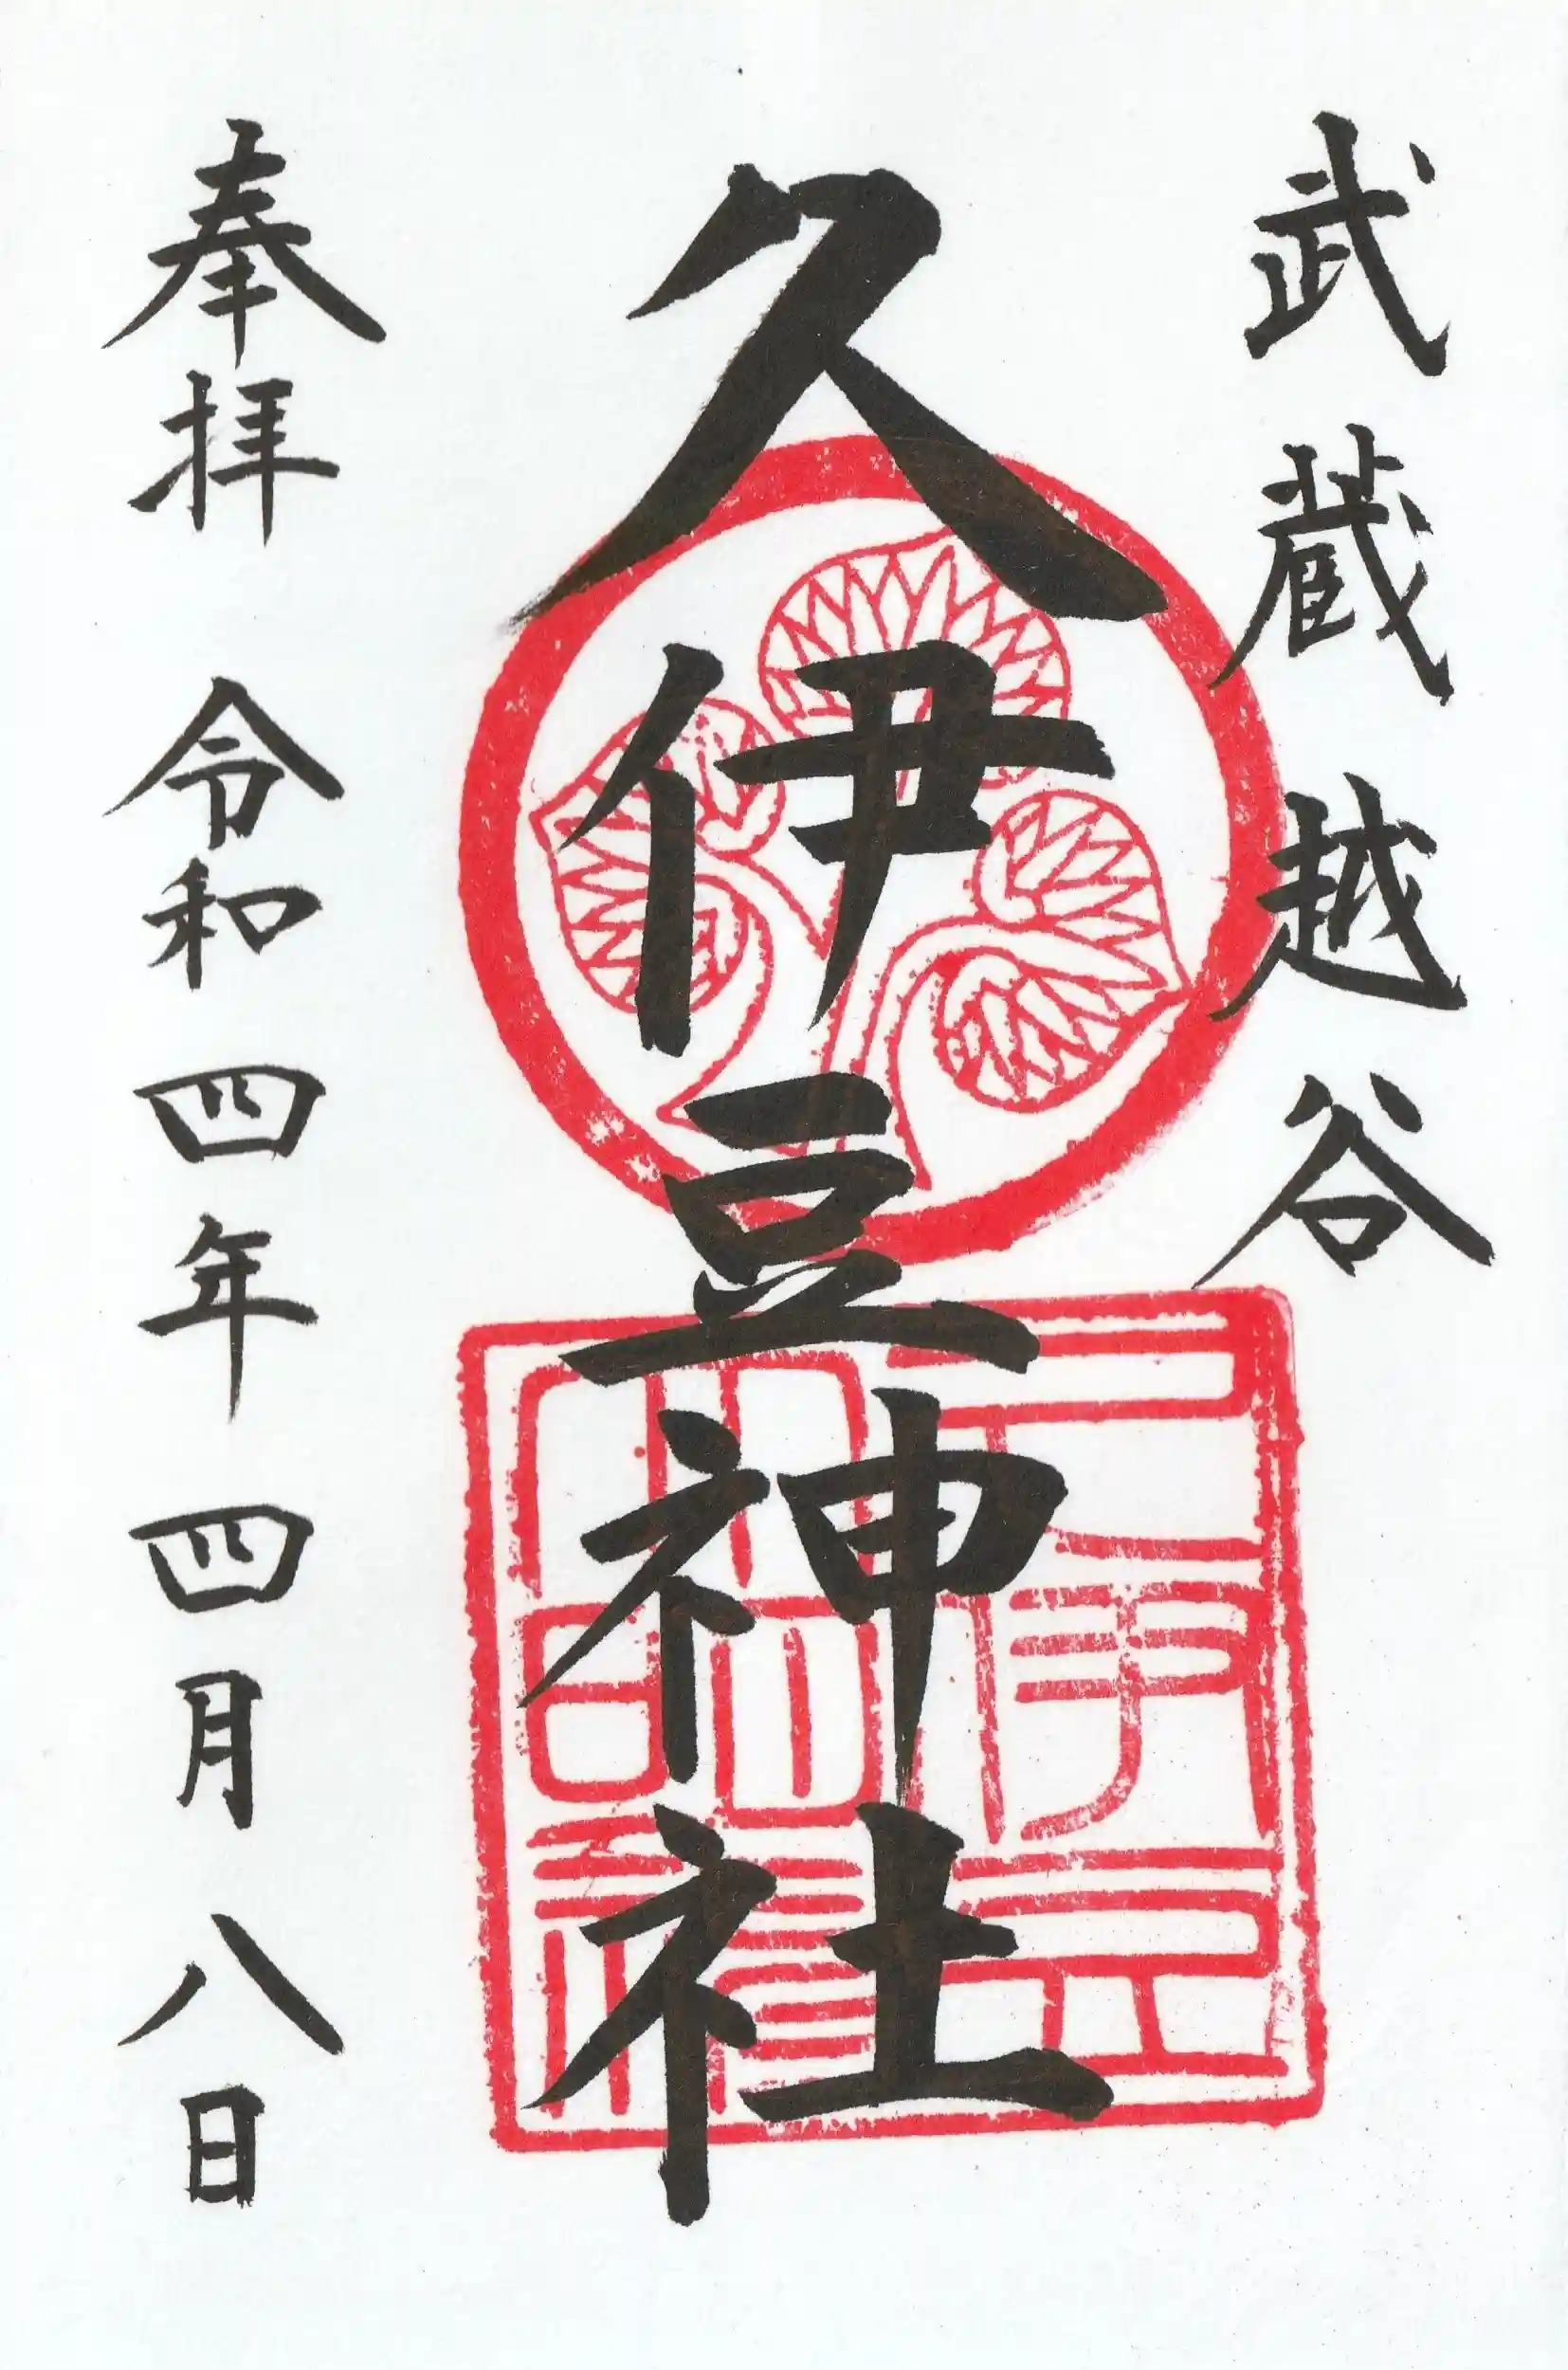 武蔵越谷
久伊豆神社
奉拝 令和四年四月八日
久伊豆
神社